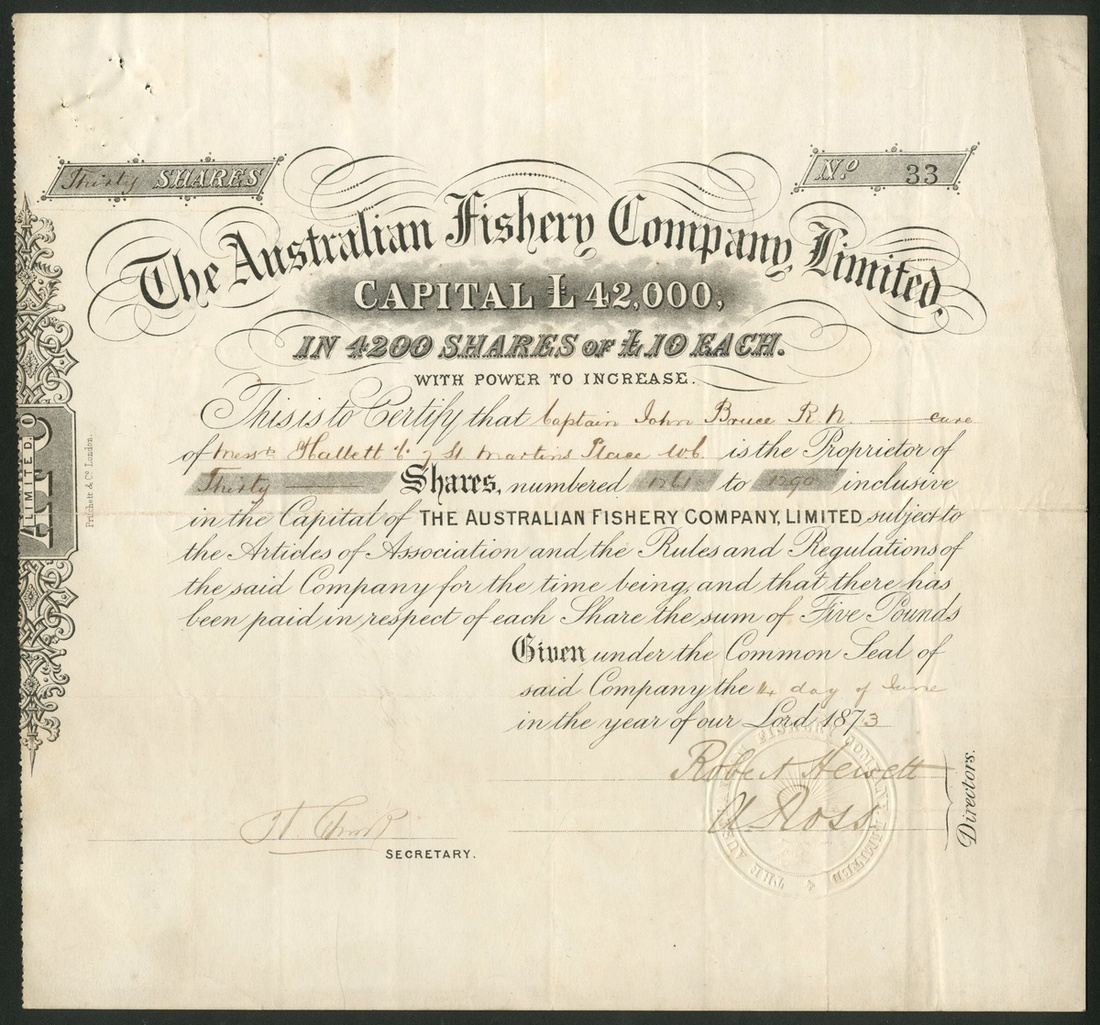 Thirty SHARES
No. 33
The Australian Fishery Company, Limited,
CAPITAL £ 42,000,
IN 4200 SHARES OF £10 EACH.
WITH POWER TO INCREASE.
This is to Certify that Captain John Bruce R. N. care
of Messrs Hallett & Co 7 St Martins Place WC. is the Proprietor of
Thirty Shares, numbered 1261 to 1290 inclusive
in the Capital of THE AUSTRALIAN FISHERY COMPANY, LIMITED subject to
the Articles of Association and the Rules and Regulations of
the said Company for the time being, and that there has
been paid in respect of each Share the sum of Five Pounds
Given under the Common Seal of
said Company the 14 day of June
in the year of our Lord 1873
Robert Hewett
A. Ross
Directors.
SECRETARY.
LIMITED.
Pritchett & Co. London.
THE AUSTRALIAN FISHERY COMPANY LIMITED